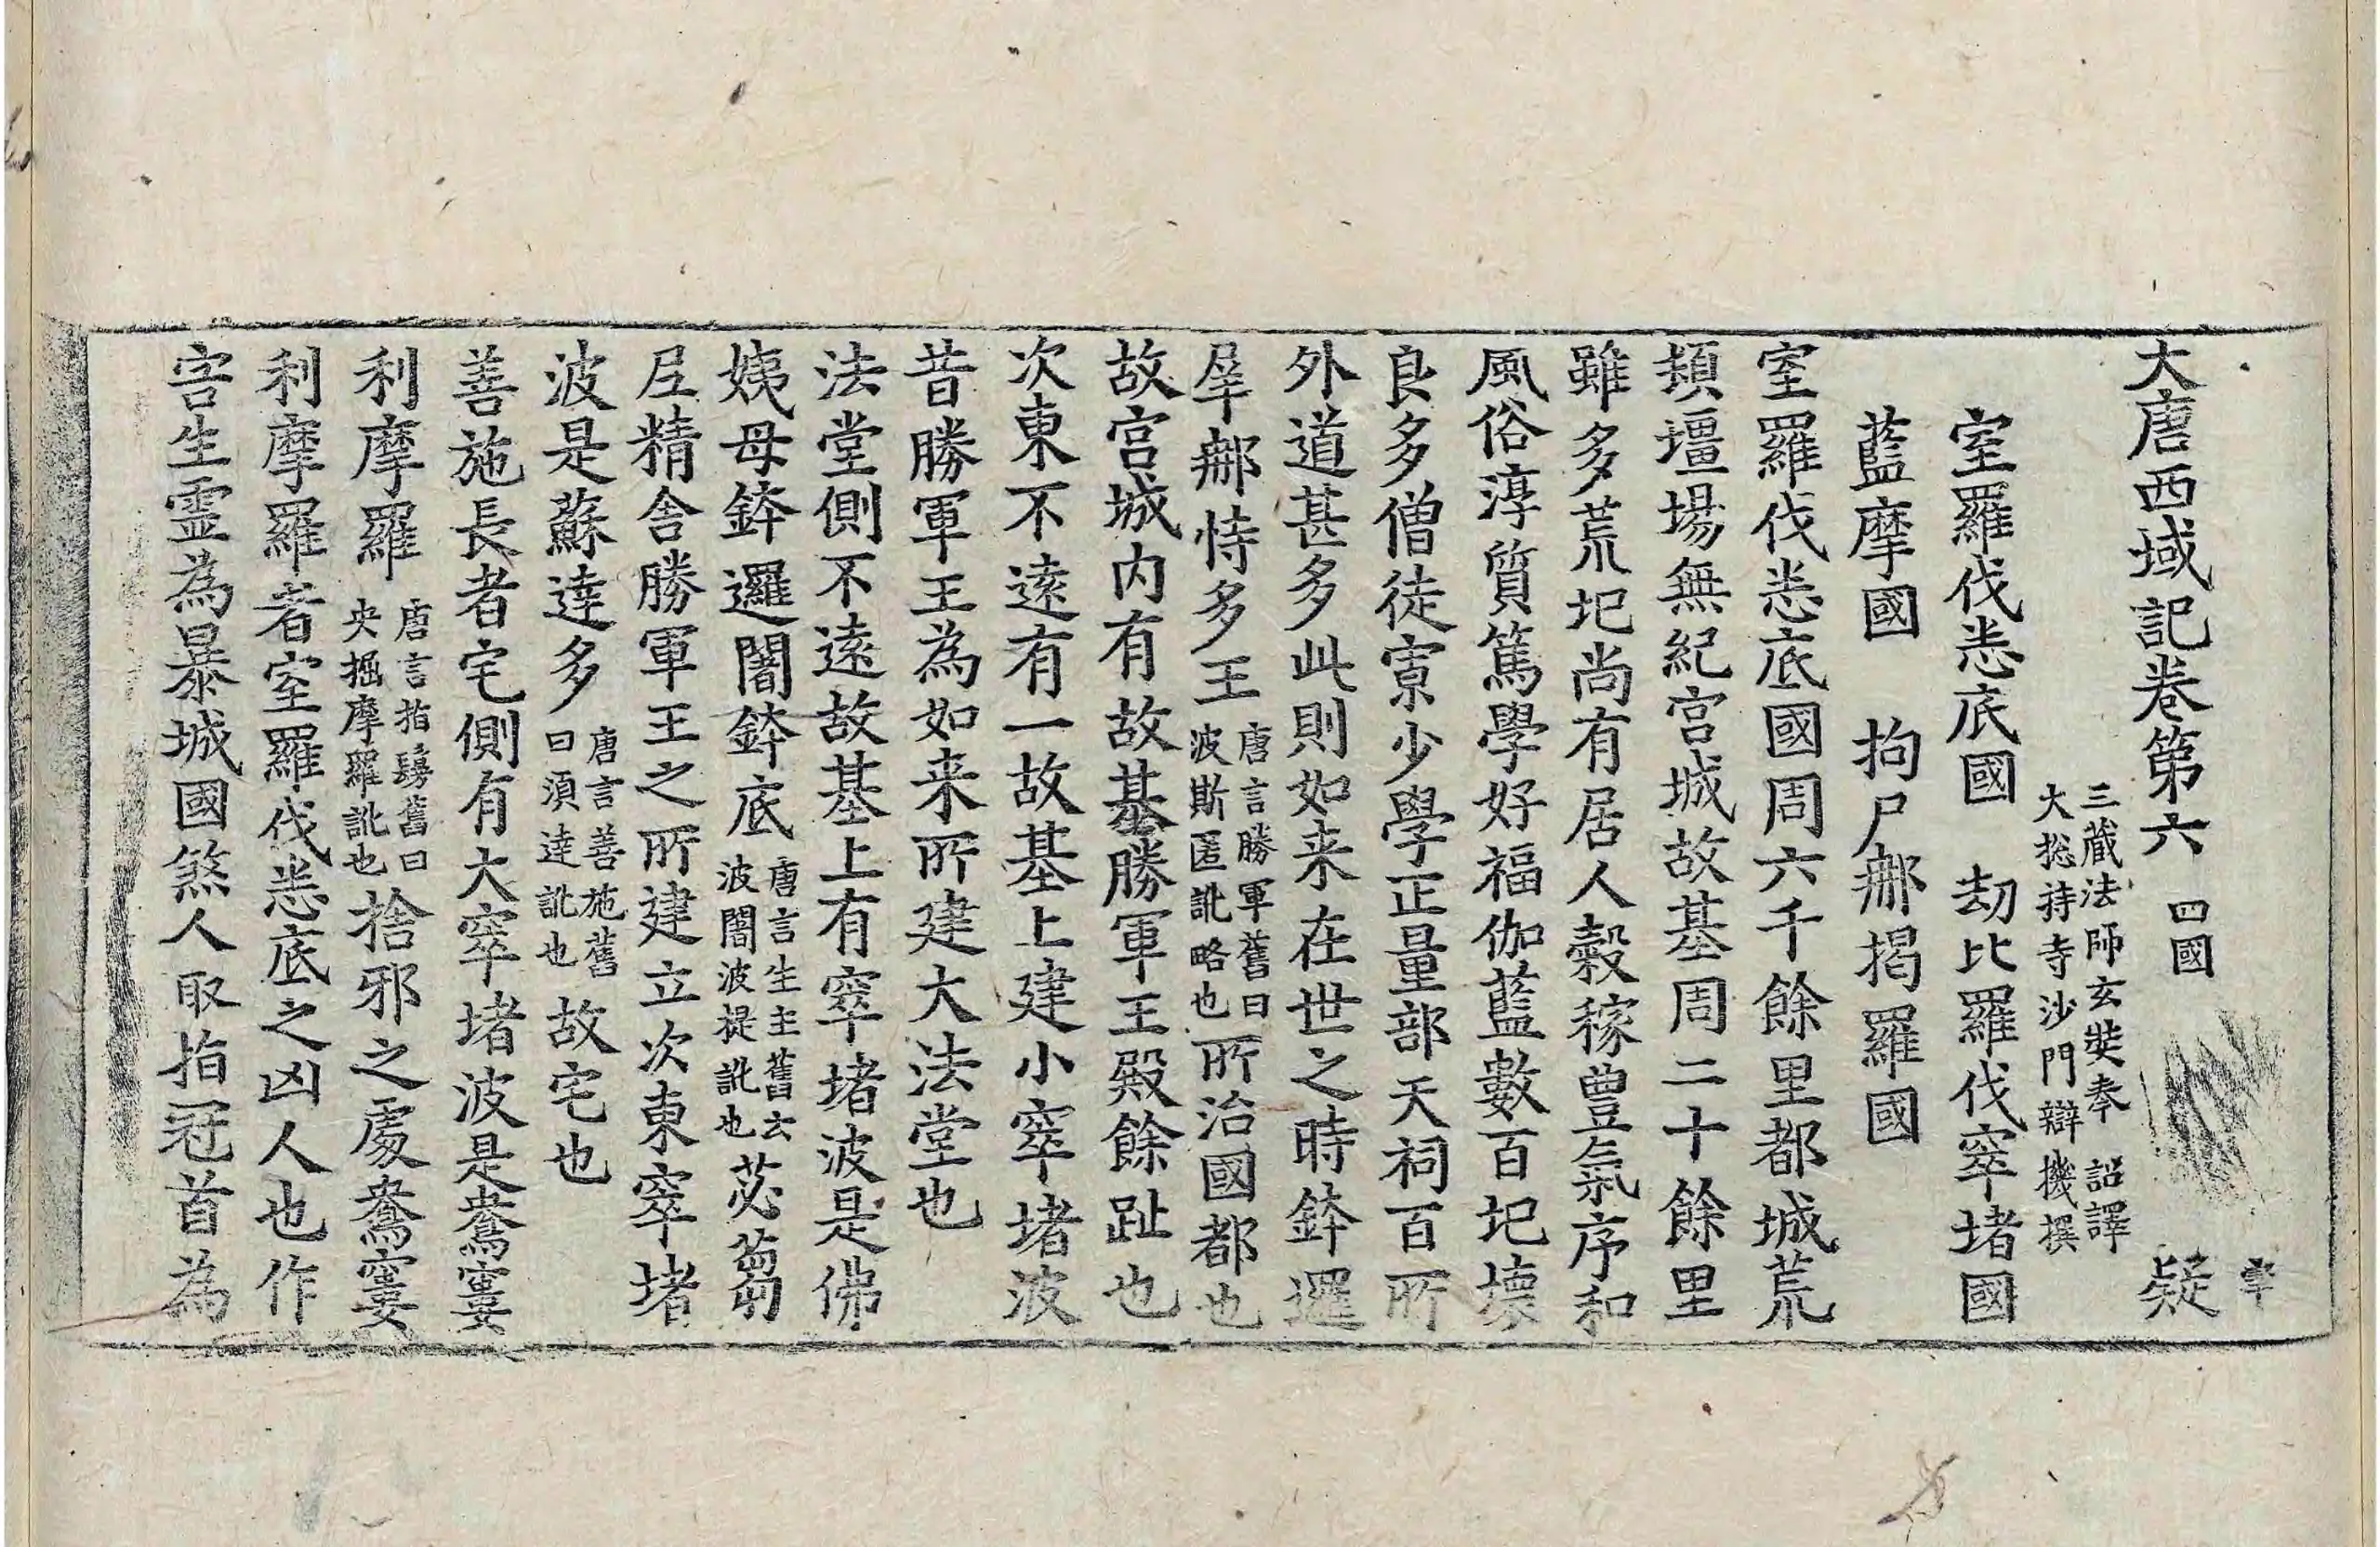 大唐西域記卷第六 四國 疑
三藏法師玄奘奉 詔譯
大捴持寺沙門辯機撰
室羅伐悉底國 劫比羅伐窣堵國
藍摩國 拘尸那揭羅國
室羅伐悉底國周六千餘里都城荒
頹壃場無紀宮城故基周二十餘里
雖多荒圮尚有居人穀稼豊氣序和
風俗淳質篤學好福伽藍數百圮壞
良多僧徒寡少學正量部天祠百所
外道甚多此則如来在世之時鉢邏
犀那恃多王唐言勝軍舊曰波斯匿訛略也所治國都也
故宮城内有故基勝軍王殿餘趾也
次東不遠有一故基上建小窣堵波
昔勝軍王為如来所建大法堂也
法堂側不遠故基上有窣堵波是佛
姨母鉢邏闍鉢底唐言生主舊云波闍波提訛也苾蒭
尼精舍勝軍王之所建立次東窣堵
波是蘇達多唐言善施舊曰須達訛也故宅也
善施長者宅側有大窣堵波是鴦窶
利摩羅唐言指鬘舊曰央掘摩羅訛也捨邪之處鴦窶
利摩羅者室羅伐悉底之凶人也作
害生靈為暴城國煞人取指冠首為